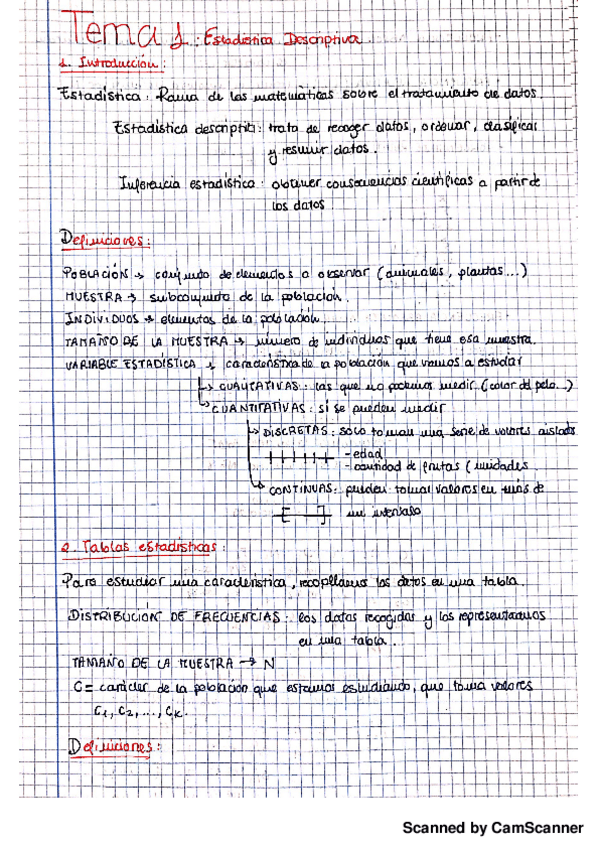 Tema 1: Estadística Descriptiva
1. Introducción:
Estadística: Rama de las matemáticas sobre el tratamiento de datos.
Estadística descriptiva: trata de recoger datos, ordenar, clasificar
y resumir datos.
Inferencia estadística: obtener consecuencias científicas a partir de
los datos
Definiciones:
POBLACIÓN → conjunto de elementos a observar (animales, plantas...)
MUESTRA → subconjunto de la población.
INDIVIDUOS → elementos de la población.
TAMAÑO DE LA MUESTRA → número de individuos que tiene esa muestra.
VARIABLE ESTADÍSTICA → característica de la población que vamos a estudiar
↳ CUALITATIVAS: las que no podemos medir (color del pelo...)
↳ CUANTITATIVAS: si se pueden medir
↳ DISCRETAS: solo toman una serie de valores aislados
- edad
- cantidad de frutas (unidades
↳ CONTINUAS: pueden tomar valores en más de
un intervalo
2. Tablas estadísticas:
Para estudiar una característica, recopilamos los datos en una tabla.
DISTRIBUCIÓN DE FRECUENCIAS: los datos recogidos y los representamos
en una tabla.
TAMAÑO DE LA MUESTRA → N
C = carácter de la población que estamos estudiando, que toma valores
C1, C2, ..., CK.
Definiciones:
Scanned by CamScanner